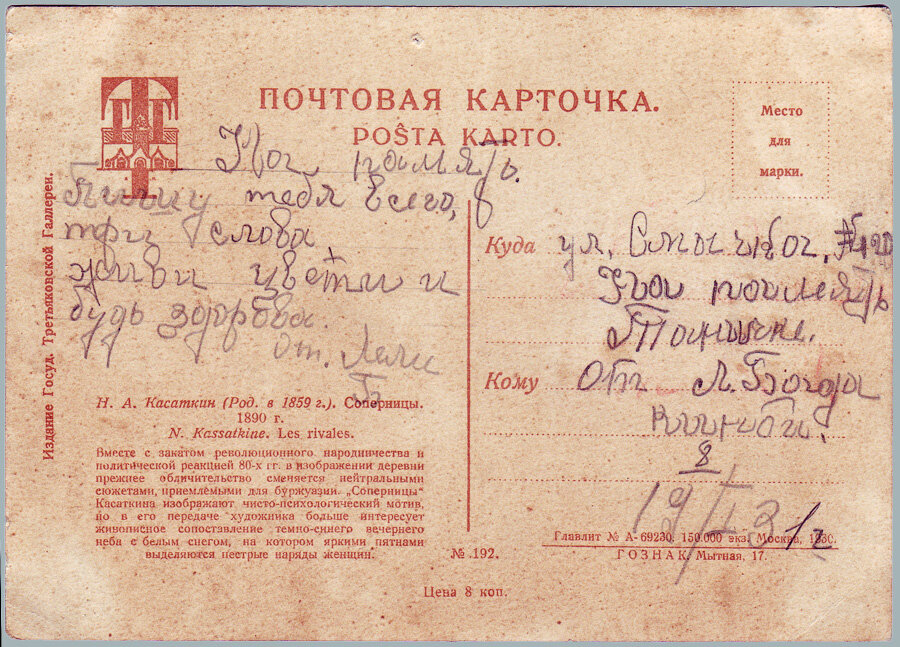 ПОЧТОВАЯ КАРТОЧКА.
POŜTA KARTO.
Место
для
марки.
На память.
Пишу тебя всего,
три слова
живи цвети и
будь здорова.
От. Лели
Б
Издание Госуд. Третьяковской Галлереи.
Куда ул. Смычка, №120
На память
Таничке.
Кому От Л. Богда
8
19/I 31г
Н. А. Касаткин (Род. в 1859 г.). Соперницы.
1890 г.
N. Kassatkine. Les rivales.
Вместе с закатом революционного народничества и
политической реакцией 80-х гг. в изображении деревни
прежнее обличительство сменяется нейтральными
сюжетами, приемлемыми для буржуазии. „Соперницы“
Касаткина изображают чисто-психологический мотив,
но в его передаче художника больше интересует
живописное сопоставление темно-синего вечернего
неба с белым снегом, на котором яркими пятнами
выделяются пестрые наряды женщин.
№ 192.
Главлит № А-69230. 150.000 экз. Москва, 1930.
ГОЗНАК. Мытная, 17.
Цена 8 коп.